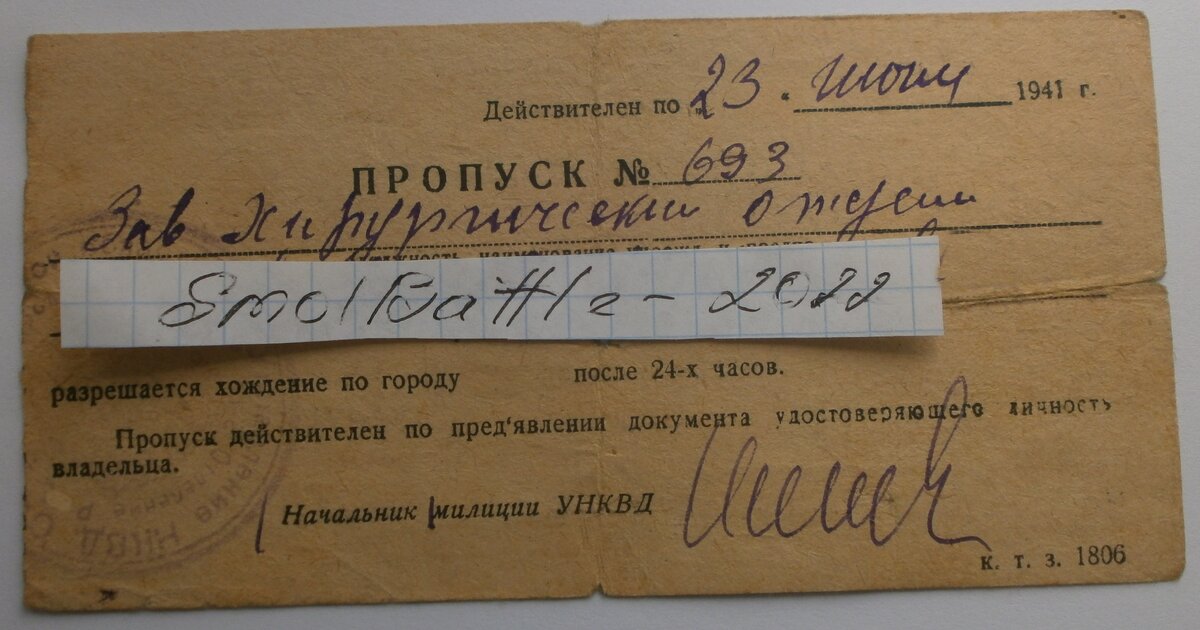 Действителен по „23 " июля 1941 г.
ПРОПУСК № 693
Зав Хирургический отделе
SmolBattle - 2022
разрешается хождение по городу после 24-х часов.
Пропуск действителен по пред'явлении документа удостоверяющего личность
владельца.
Начальник милиции УНКВД
к. т. з. 1806
НКВД